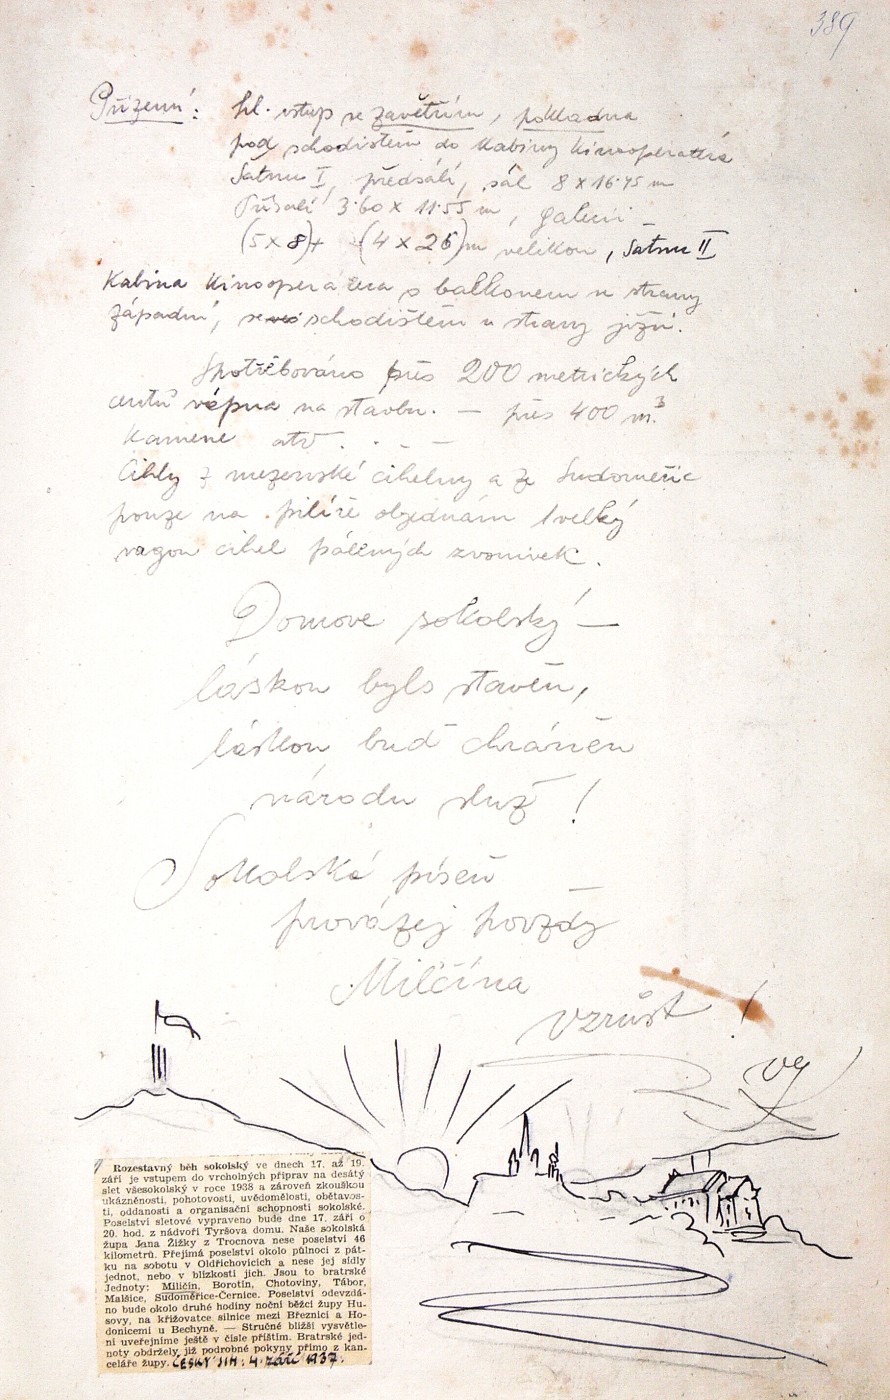 389
Přízemí: hl. vstup se závětřím, pokladna
pod schodištěm do kabiny kinooperatéra
Šatna I, předsálí, sál 8 x 16·45 m
Přísálí 3·60 x 11·55 m, galerii
(5 x 8) + (4 x 26) m velikou, šatnu II
Kabina kinooperatéra s balkonem u strany
západní, se schodištěm u strany jižní.
Spotřebováno přes 200 metrických
centů vápna na stavbu. — přes 400 m³
kamene atd . . . —
Cihly z mezenské cihelny a ze Sudoměřic
pouze na pilíře objednám 1 velký
vagon cihel pálených zvonivek.
Domove sokolský —
láskou byls stavěn,
láskou buď chráněn
národu služ !
Sokolská píseň
provázej povždy
Milčína
vzrůst !
Rozestavný běh sokolský ve dnech 17. až 19.
září je vstupem do vrcholných příprav na desátý
slet všesokolský v roce 1938 a zároveň zkouškou
ukázněnosti, pohotovosti, uvědomělosti, obětavos-
ti, oddanosti a organisační schopnosti sokolské.
Poselství sletové vypraveno bude dne 17. září o
20. hod. z nádvoří Tyršova domu. Naše sokolská
župa Jana Žižky z Trocnova nese poselství 46
kilometrů. Přejímá poselství okolo půlnoci z pát-
ku na sobotu v Oldřichovicích a nese jej sídly
jednot, nebo v blízkosti jich. Jsou to bratrské
Jednoty: Miličín, Borotín, Chotoviny, Tábor,
Malšice, Sudoměřice-Černice. Poselství odevzdá-
no bude okolo druhé hodiny noční běžci župy Hu-
sovy, na křižovatce silnice mezi Březnicí a Ho-
donicemi u Bechyně. — Stručné bližší vysvětle-
ní uveřejníme ještě v čísle příštím. Bratrské jed-
noty obdržely již podrobné pokyny přímo z kan-
celáře župy. ČESKÝ JIH. 4. září 1937.